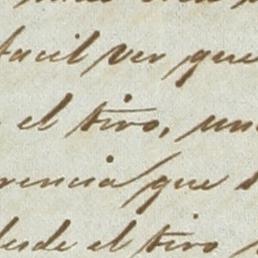 facil ver que
el tiro, un
rencia que
desde el tiro